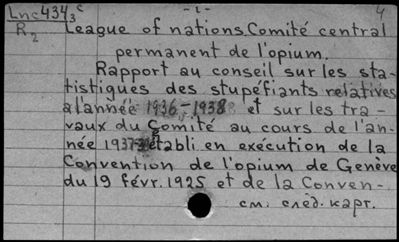 Lnc434³c - 1 - 4
R₂ League of nations. Comité central
permanent de l'opium.
Rapport au conseil sur les sta-
tistiques des stupéfiants relatives
à l'année 1936-1938 et sur les tra-
vaux du Comité au cours de l'an-
née 1937 établi en exécution de la
Convention de l'opium de Genève
du 19 févr. 1925 et de la Conven-.
см. след. карт.